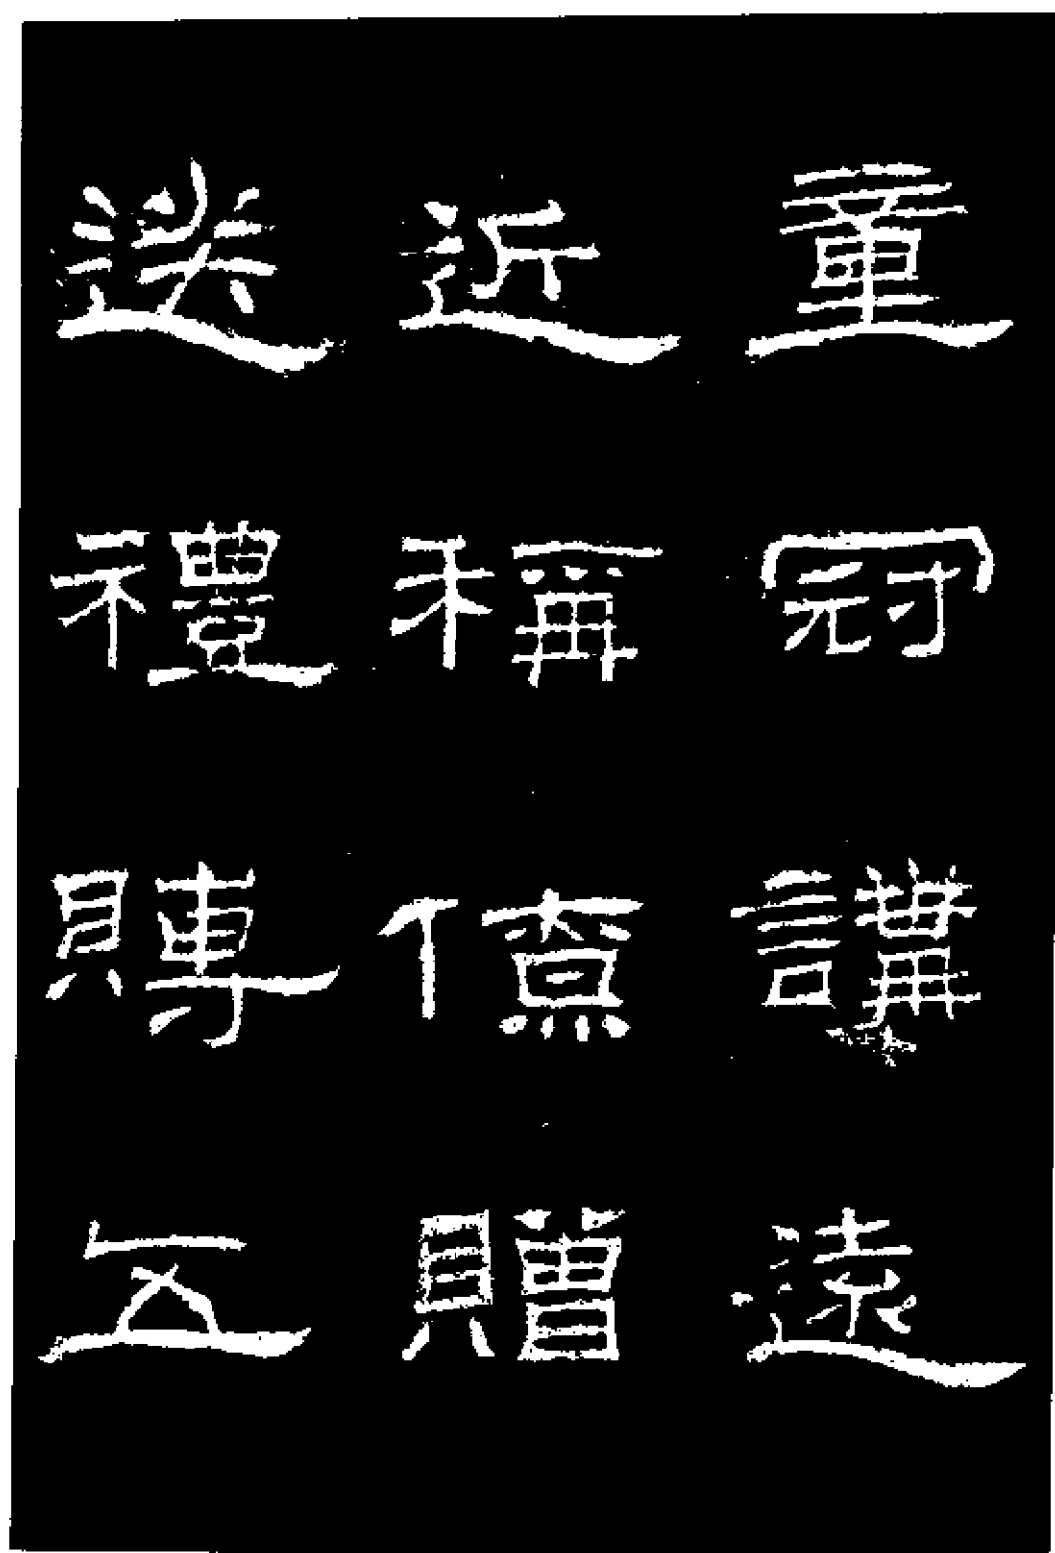 童冠講遠
近稱僚贈
送禮賻五